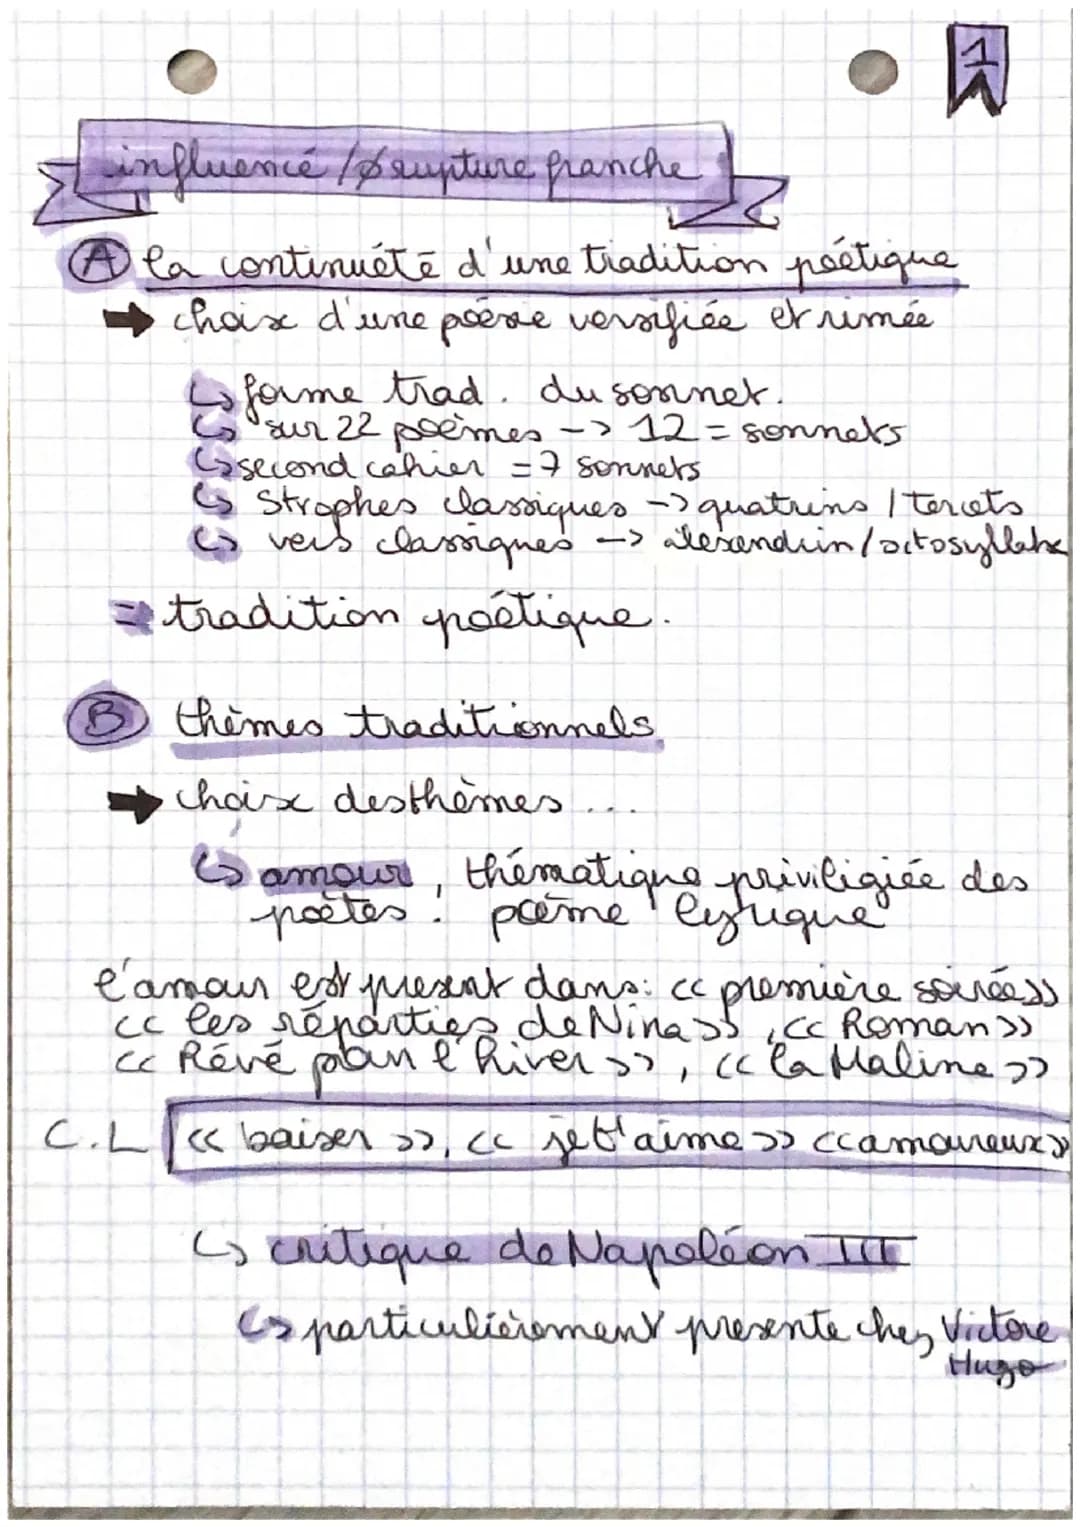 1
influence / ø rupture franche
A la continuété d'une tradition poétique
➡ choix d'une poésie versifiée et rimée
↳ forme trad. du sonnet.
↳ sur 22 poèmes -> 12 = sonnets
↳ second cahier = 7 sonnets
↳ Strophes classiques -> quatrins / tercets
↳ vers classiques -> alexendrin/octosyllabe
=> tradition poétique.
B thèmes traditionnels
➡ choix des thèmes ...
↳ amour, thématique priviligiée des
poètes : poème lyrique
l'amour est présent dans: << première soirée>>
<< les réparties de Nina >>, << Roman >>
<< Rêvé pour l'hiver >>, << la Maline >>
C.L << baiser >>, << je t'aime >> <<amoureux>>
↳ critique de Napoléon III
↳ particulièrement présente chez Victore
Hugo